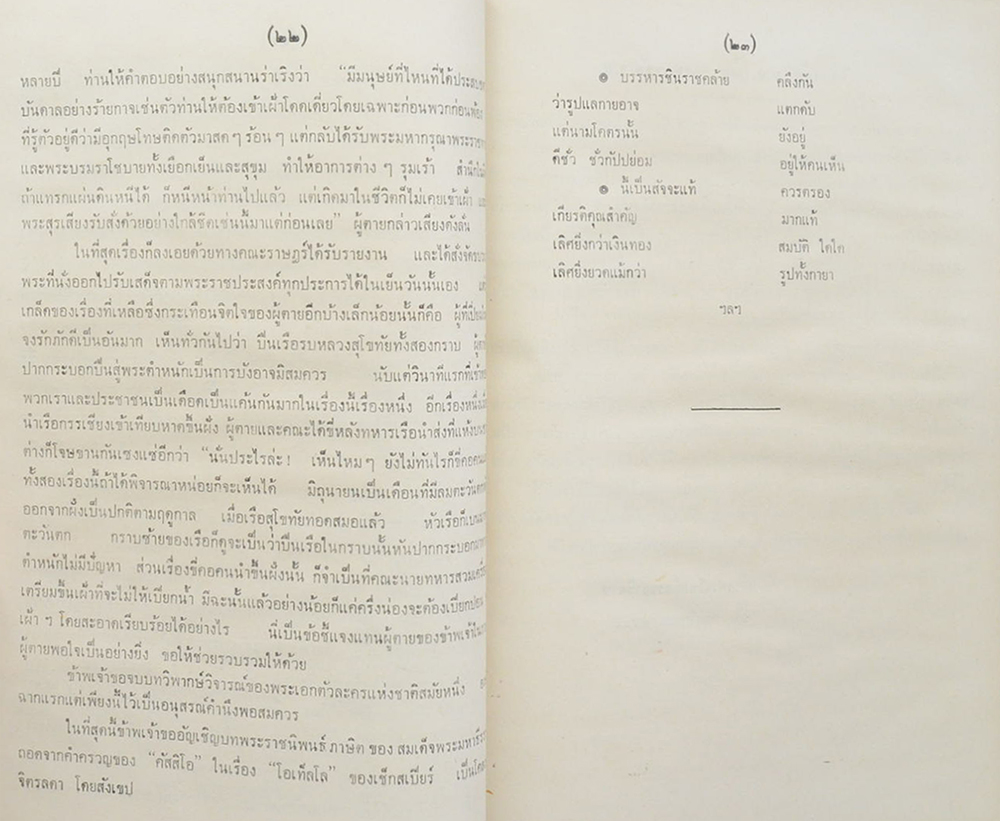 (๒๒)
หลายปี ท่านให้คำตอบอย่างสนุกสนานร่าเริงว่า “มีมนุษย์ที่ไหนที่ได้ประสบ
บันดาลอย่างร้ายกาจเช่นตัวท่านให้ต้องเข้าเฝ้าโดดเดี่ยวโดยเฉพาะก่อนพวกก่อน
ที่รู้ตัวอยู่ดีว่ามีอุกฤษโทษติดตัวมาสด ๆ ร้อน ๆ แต่กลับได้รับพระมหากรุณาพระรา
และพระบรมราโชบายทั้งเยือกเย็นและสุขุม ทำให้อาการต่าง ๆ รุมเร้า สำนึก
ถ้าแทรกแผ่นดินหนีได้ ก็หนีหน้าท่านไปแล้ว แต่เกิดมาในชีวิตก็ไม่เคยเข้าเฝ้า
พระสุรเสียงรับสั่งด้วยอย่างใกล้ชิดเช่นนี้มาแต่ก่อนเลย” ผู้ตายกล่าวเสียงดังลั่น
ในที่สุดเรื่องก็ลงเอยด้วยทางคณะราษฎร์ได้รับรายงาน และได้สั่งจัด
พระที่นั่งออกไปรับเสด็จตามพระราชประสงค์ทุกประการได้ในเย็นวันนั้นเอง
เกล็ดของเรื่องที่เหลือซึ่งกระเทือนจิตใจของผู้ตายอีกบ้างเล็กน้อยนั้นก็คือ ผู้ที่
จงรักภักดีเป็นอันมาก เห็นทั่วกันไปว่า ปืนเรือรบหลวงสุโขทัยทั้งสองกราบ
ปากกระบอกปืนสู่พระตำหนักเป็นการบังอาจมิสมควร นับแต่วินาทีแรกที่
พวกเราและประชาชนเป็นเดือดเป็นแค้นกันมากในเรื่องนี้เรื่องหนึ่ง อีกเรื่องหนึ่ง
นำเรือกรรเชียงเข้าเทียบหาดขึ้นฝั่ง ผู้ตายและคณะได้ขี่หลังทหารเรือนำส่งที่แห้ง
ต่างก็โจษขานกันเซงแซ่อีกว่า “นั่นประไรล่ะ ! เห็นไหม ๆ ยังไม่ทันไรก็ขี่คอ
ทั้งสองเรื่องนี้ถ้าได้พิจารณาหน่อยก็จะเห็นได้ มิถุนายนเป็นเดือนที่มีลมตะวันตก
ออกจากฝั่งเป็นปกติตามฤดูกาล เมื่อเรือสุโขทัยทอดสมอแล้ว หัวเรือก็
ตะวันตก กราบซ้ายของเรือก็ดูจะเป็นว่าปืนเรือในกราบนั้นหันปากกระบอก
ตำหนักไม่มีปัญหา ส่วนเรื่องขี่คอคนนำขึ้นฝั่งนั้น ก็จำเป็นที่คณะนายทหารสวม
เตรียมขึ้นเฝ้าที่จะไม่ให้เปียกน้ำ มิฉะนั้นแล้วอย่างน้อยก็แค่ครึ่งน่องจะต้องเปียก
เฝ้า ฯ โดยสะอาดเรียบร้อยได้อย่างไร นี่เป็นข้อชี้แจงแทนผู้ตายของข้าพเจ้า
ผู้ตายพอใจเป็นอย่างยิ่ง ขอให้ช่วยรวบรวมให้ด้วย
ข้าพเจ้าขอจบบทวิพากษ์วิจารณ์ของพระเอกตัวละครแห่งชาติสมัยหนึ่ง
ฉากแรกแต่เพียงนี้ไว้เป็นอนุสรณ์คำนึงพอสมควร
ในที่สุดนี้ข้าพเจ้าขออัญเชิญบทพระราชนิพนธ์ ภาษิต ของ สมเด็จพระมหาธีร
ถอดจากคำครวญของ “คัสสิโอ” ในเรื่อง “โอเท็ลโล” ของเช็กสเปียร์ เป็น
จิตรลดา โดยสังเขป
(๒๓)
๏ บรรหารชินราชคล้าย คลึงกัน
ว่ารูปแลกายอาจ แตกดับ
แต่นามโคตรนั้น ยังอยู่
ดีชั่ว ชั่วกัปป์ย่อม อยู่ให้คนเห็น
๏ นี้เป็นสัจจะแท้ ควรตรอง
เกียรติคุณสำคัญ มากแท้
เลิศยิ่งกว่าเงินทอง สมบัติ ใดใด
เลิศยิ่งยวดแม้กว่า รูปทั้งกายา
ฯลฯ